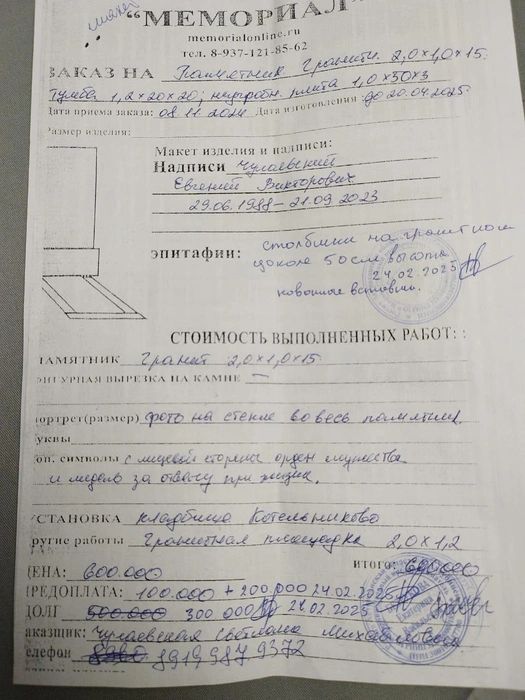 "МЕМОРИАЛ"
memorialonline.ru
тел. 8-937-121-85-62
ЗАКАЗ НА Памятник Гранитн. 2,0×1,0×15.
Тумба 1,2×20×20; надгробн. плита 1,0×50×3
Дата приема заказа: 08.11.2024 Дата изготовления: до 20.04.2025.
Размер изделия:
Макет изделия и надписи:
Надписи Чулаевский
Евгений Викторович
29.06.1988-21.09 2023
ЭПИТАФИИ: столбики на гранитном
цоколе 50см высота
24.02.2025
СТОИМОСТЬ ВЫПОЛНЕННЫХ РАБОТ: :
ПАМЯТНИК Гранит 2,0×1,0×15.
ФИГУРНАЯ ВЫРЕЗКА НА КАМНЕ —
портрет(размер) фото на стекле во весь памятник
буквы
доп. символы с лицевой стороны орден мужества
и медаль за отвагу при жизни.
УСТАНОВКА кладбище Котельниково
другие работы Гранитная площадка 2,0×1,2
ИТОГО: 600.000
ЦЕНА: 600.000
ПРЕДОПЛАТА: 100.000 + 200,000 24.02.2025
ДОЛГ 500.000 300 000 24.02.2025
Заказчик: Чулаевская Светлана Михайловна
телефон 8919 987 9372